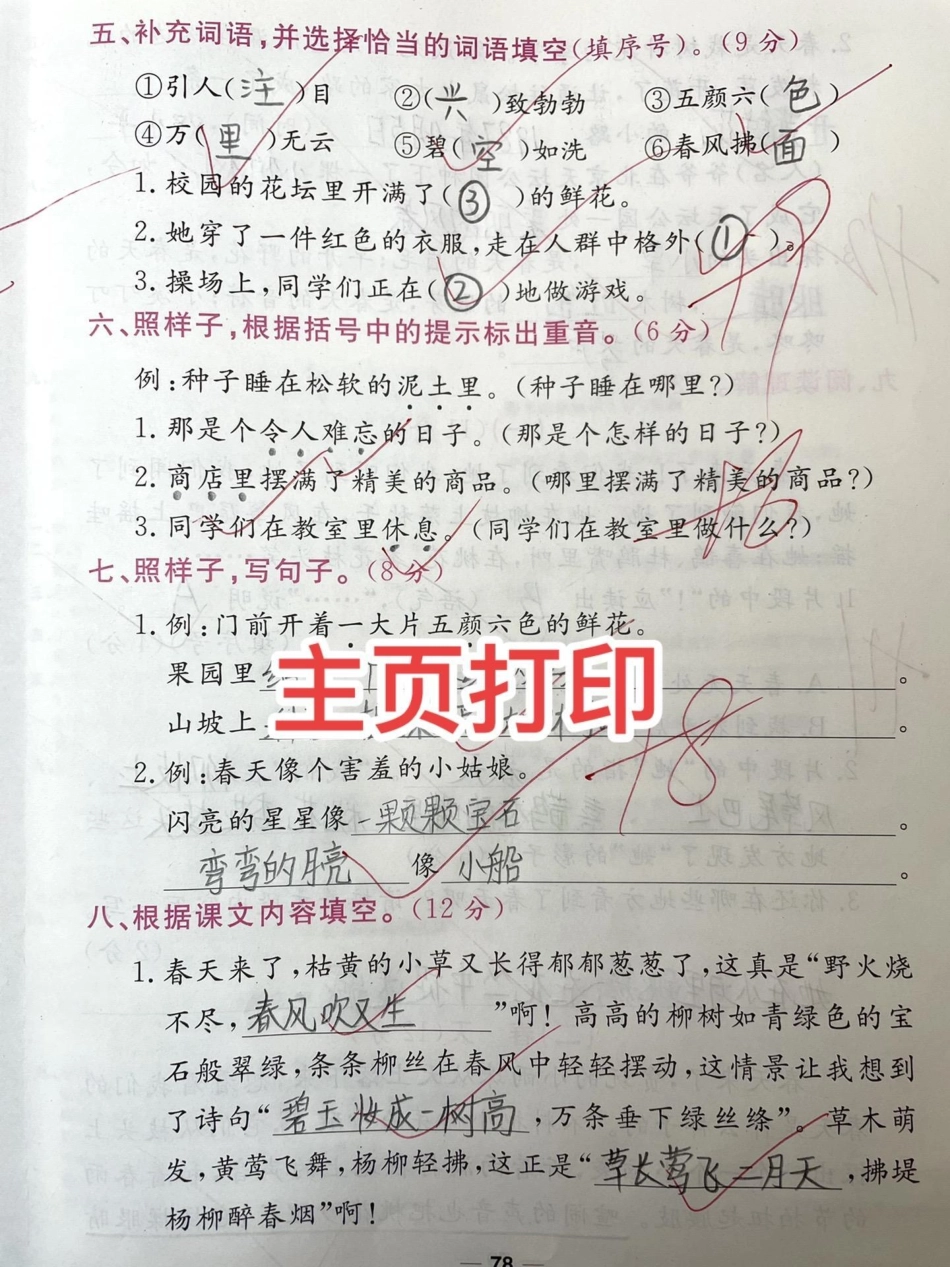 五、补充词语,并选择恰当的词语填空(填序号)。(9分)
①引人(注)目 ②(兴)致勃勃 ③五颜六(色)
④万(里)无云 ⑤碧(空)如洗 ⑥春风拂(面)
1.校园的花坛里开满了(③)的鲜花。
2.她穿了一件红色的衣服,走在人群中格外(①)。
3.操场上,同学们正在(②)地做游戏。
+9
六、照样子,根据括号中的提示标出重音。(6分)
例:种子睡在松软的泥土里。(种子睡在哪里?)
1.那是个令人难忘的日子。(那是个怎样的日子?)
2.商店里摆满了精美的商品。(哪里摆满了精美的商品?)
3.同学们在教室里休息。(同学们在教室里做什么?)
七、照样子,写句子。(8分)
1.例:门前开着一大片五颜六色的鲜花。
果园里 。
主页打印
山坡上 。
+8
2.例:春天像个害羞的小姑娘。
闪亮的星星像一颗颗宝石。
弯弯的月亮 像 小船。
八、根据课文内容填空。(12分)
1.春天来了,枯黄的小草又长得郁郁葱葱了,这真是“野火烧
不尽,春风吹又生”啊!高高的柳树如青绿色的宝
石般翠绿,条条柳丝在春风中轻轻摆动,这情景让我想到
了诗句“碧玉妆成一树高,万条垂下绿丝绦”。草木萌
发,黄莺飞舞,杨柳轻拂,这正是“草长莺飞二月天,拂堤
杨柳醉春烟”啊!
— 78 —